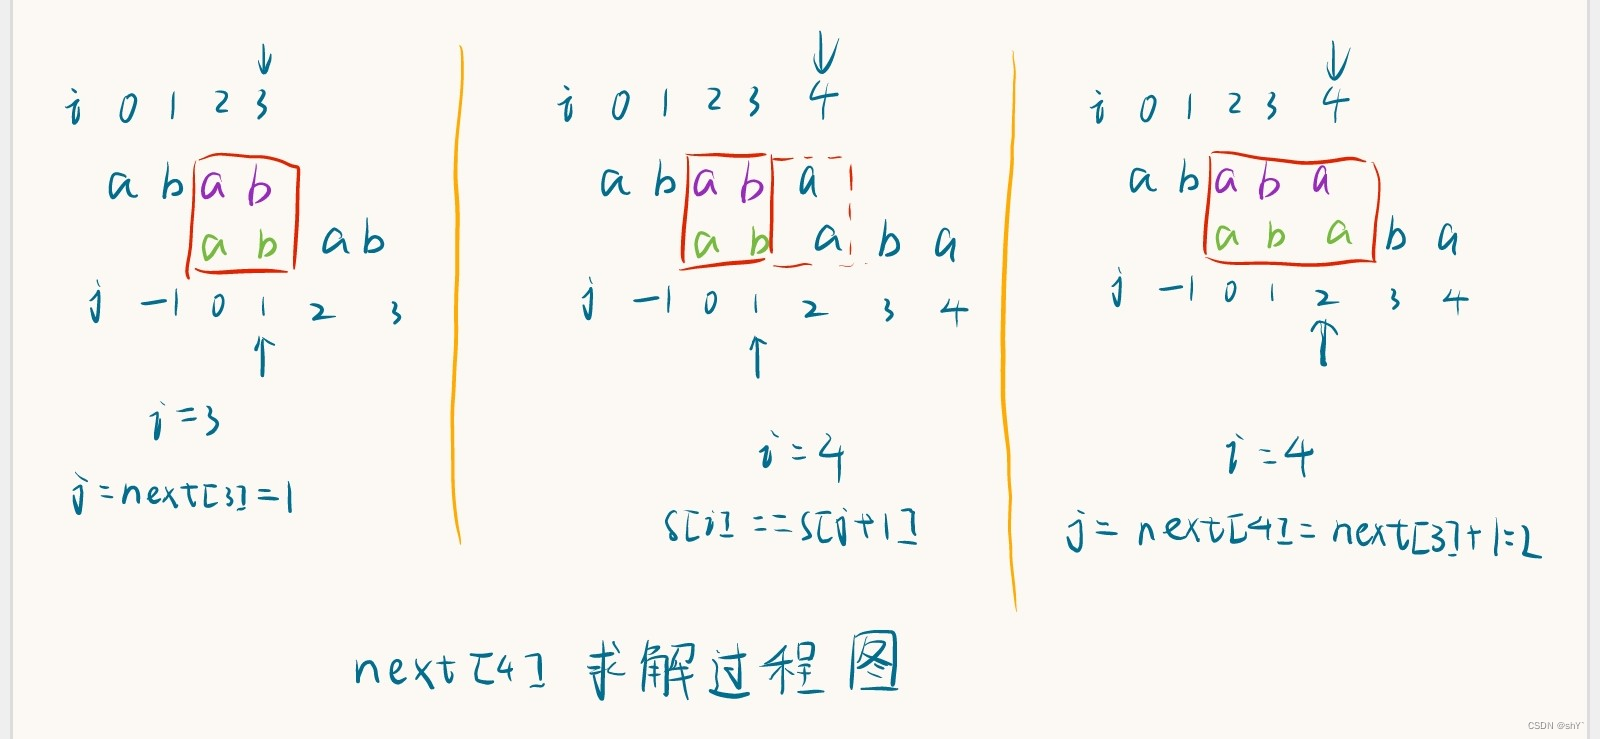 i 0 1 2 3
a b a b
a b a b
j -1 0 1 2 3
i=3
j=next[3]=1
i 0 1 2 3 4
a b a b a
a b a b a
j -1 0 1 2 3 4
i=4
s[i]==s[j+1]
i 0 1 2 3 4
a b a b a
a b a b a
j -1 0 1 2 3 4
i=4
j=next[4]=next[3]+1=2
next[4] 求解过程图
CSDN @shY`